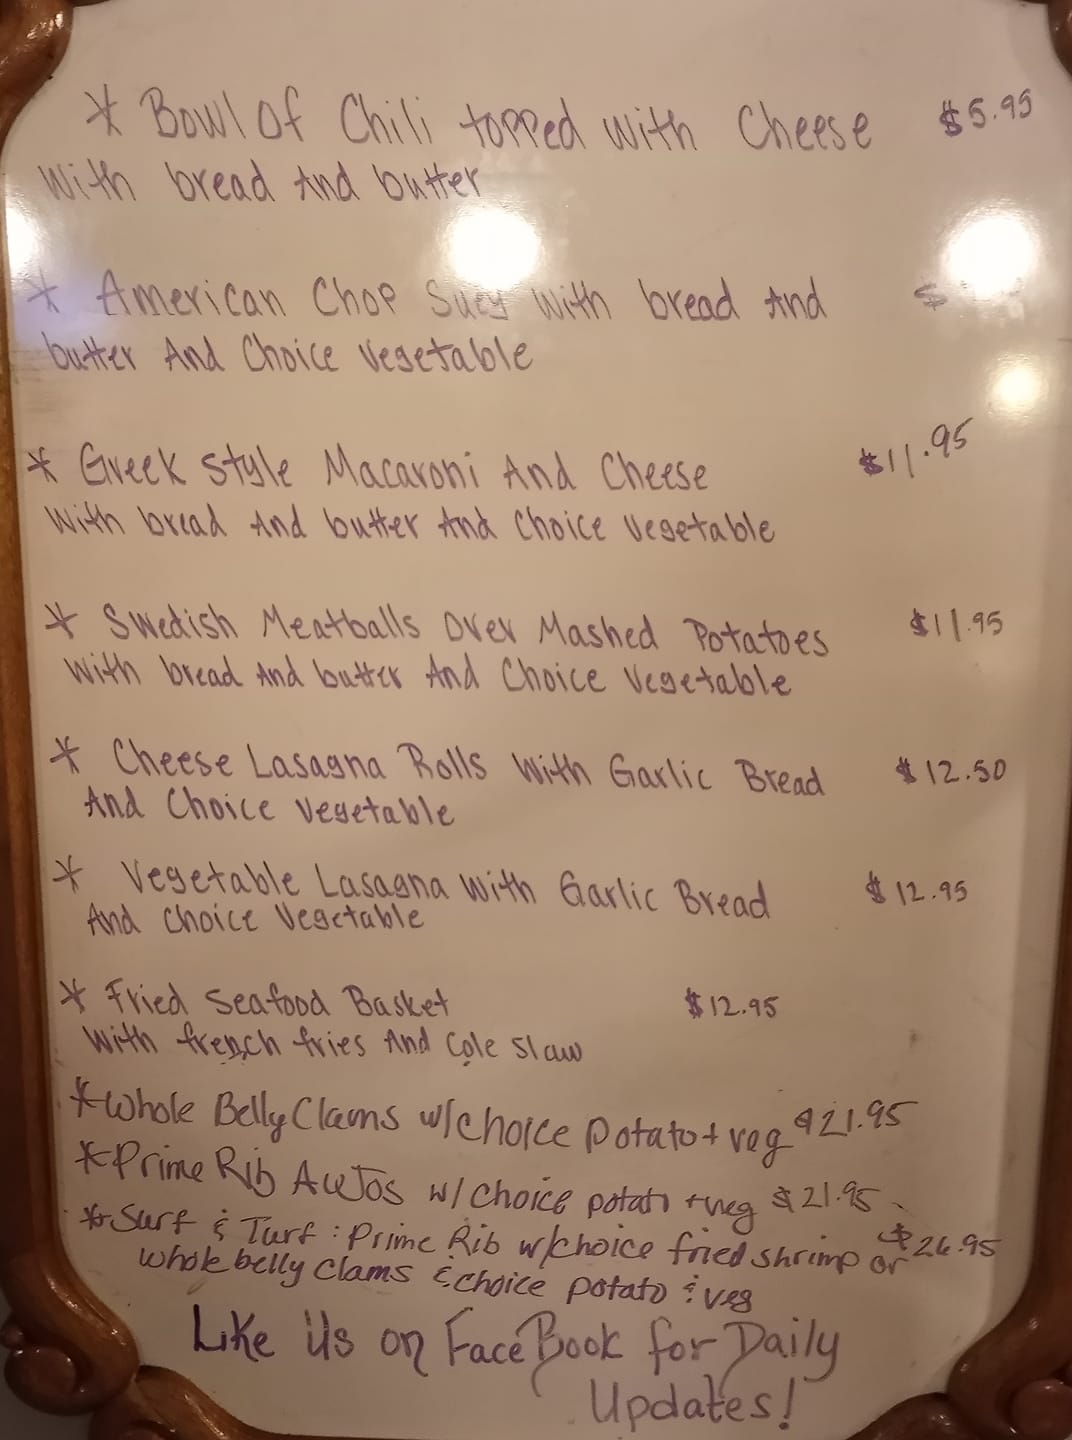 * Bowl Of Chili topped With Cheese $5.95
With bread And butter
* American Chop Suey With bread And $
butter And Choice Vegetable
* Greek Style Macaroni And Cheese $11.95
With bread And butter And Choice Vegetable
* Swedish Meatballs Over Mashed Potatoes $11.95
With bread And butter And Choice Vegetable
* Cheese Lasagna Rolls With Garlic Bread $12.50
And Choice Vegetable
* Vegetable Lasagna With Garlic Bread $12.95
And Choice Vegetable
* Fried Seafood Basket $12.95
With french fries And Cole Slaw
* Whole Belly Clams w/choice potato + veg $21.95
* Prime Rib AuJos w/choice potato + veg $21.95
* Surf & Turf: Prime Rib w/choice fried shrimp or $26.95
whole belly clams & choice potato & veg
Like Us on FaceBook for Daily
Updates!